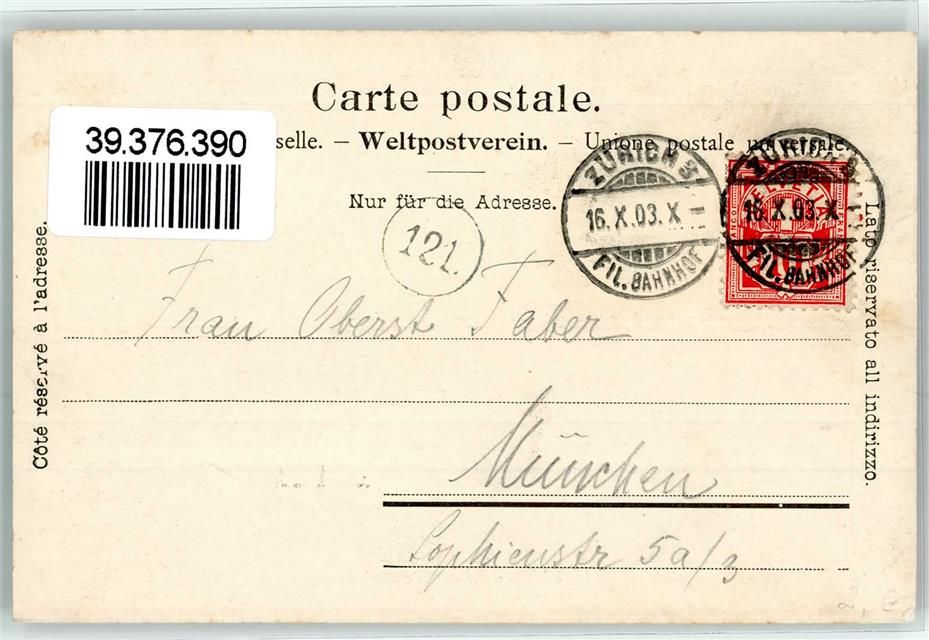 Carte postale.
39.376.390
selle. – Weltpostverein. – Unione postale universale.
Nur für die Adresse.
ZÜRICH 3
16. X. 03. X –
FIL. BAHNHOF
ZÜRICH 3
16. X. 03. X
FIL. BAHNHOF
HELVETIA
10
121.
Côté réservé à l'adresse.
Lato riservato all indirizzo.
Frau Oberst Faber
München
Sophienstr 5a/3